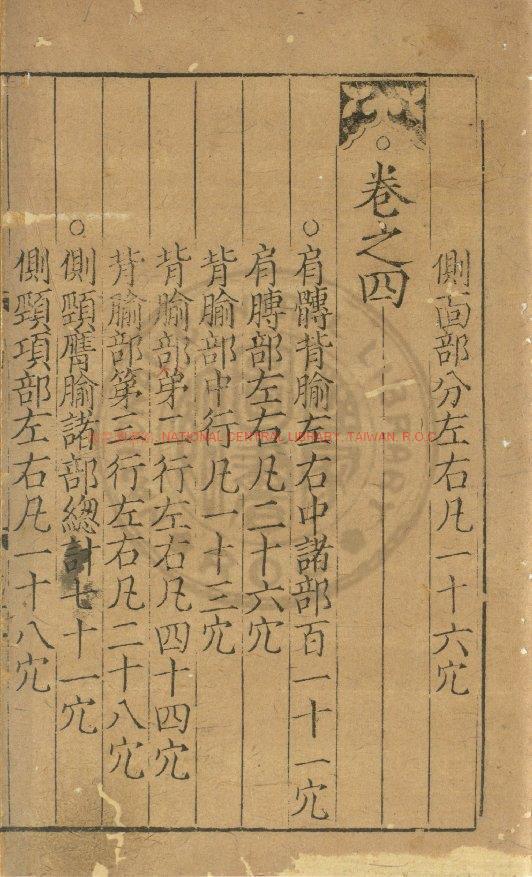 側面部分左右凡一十六穴
○卷之四
○肩髆背腧左右中諸部百一十一穴
肩膊部左右凡二十六穴
背腧部中行凡一十三穴
背腧部第二行左右凡四十四穴
背腧部第三行左右凡二十八穴
○側頸膺腧諸部總計七十一穴
側頸項部左右凡一十八穴
NATIONAL CENTRAL LIBRARY, TAIWAN, R.O.C